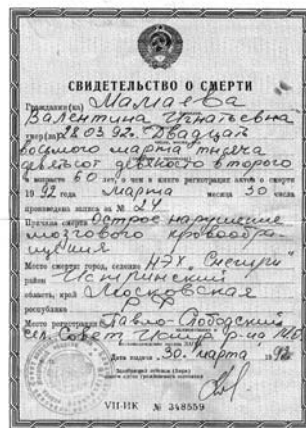 СВИДЕТЕЛЬСТВО О СМЕРТИ
Гражданин(ка) Мамаева
Валентина Игнатьевна
умер(ла) 28.03.92г. Двадцать
восьмого марта тысяча
девятьсот девяносто второго
в возрасте 60 лет, о чем в книге регистрации актов о смерти
1992 года марта месяца 30 числа
произведена запись за № 24
Причина смерти Острое нарушение
мозгового кровообра-
щения
Место смерти: город, селение НЭХ "Снегири"
район Истринский
область, край Московская
республика РФ
Место регистрации Павло-Слободский
сел. Совет Истр. р-на М.О.
Дата выдачи "30" марта 1992г.
VII-ИК № 348559